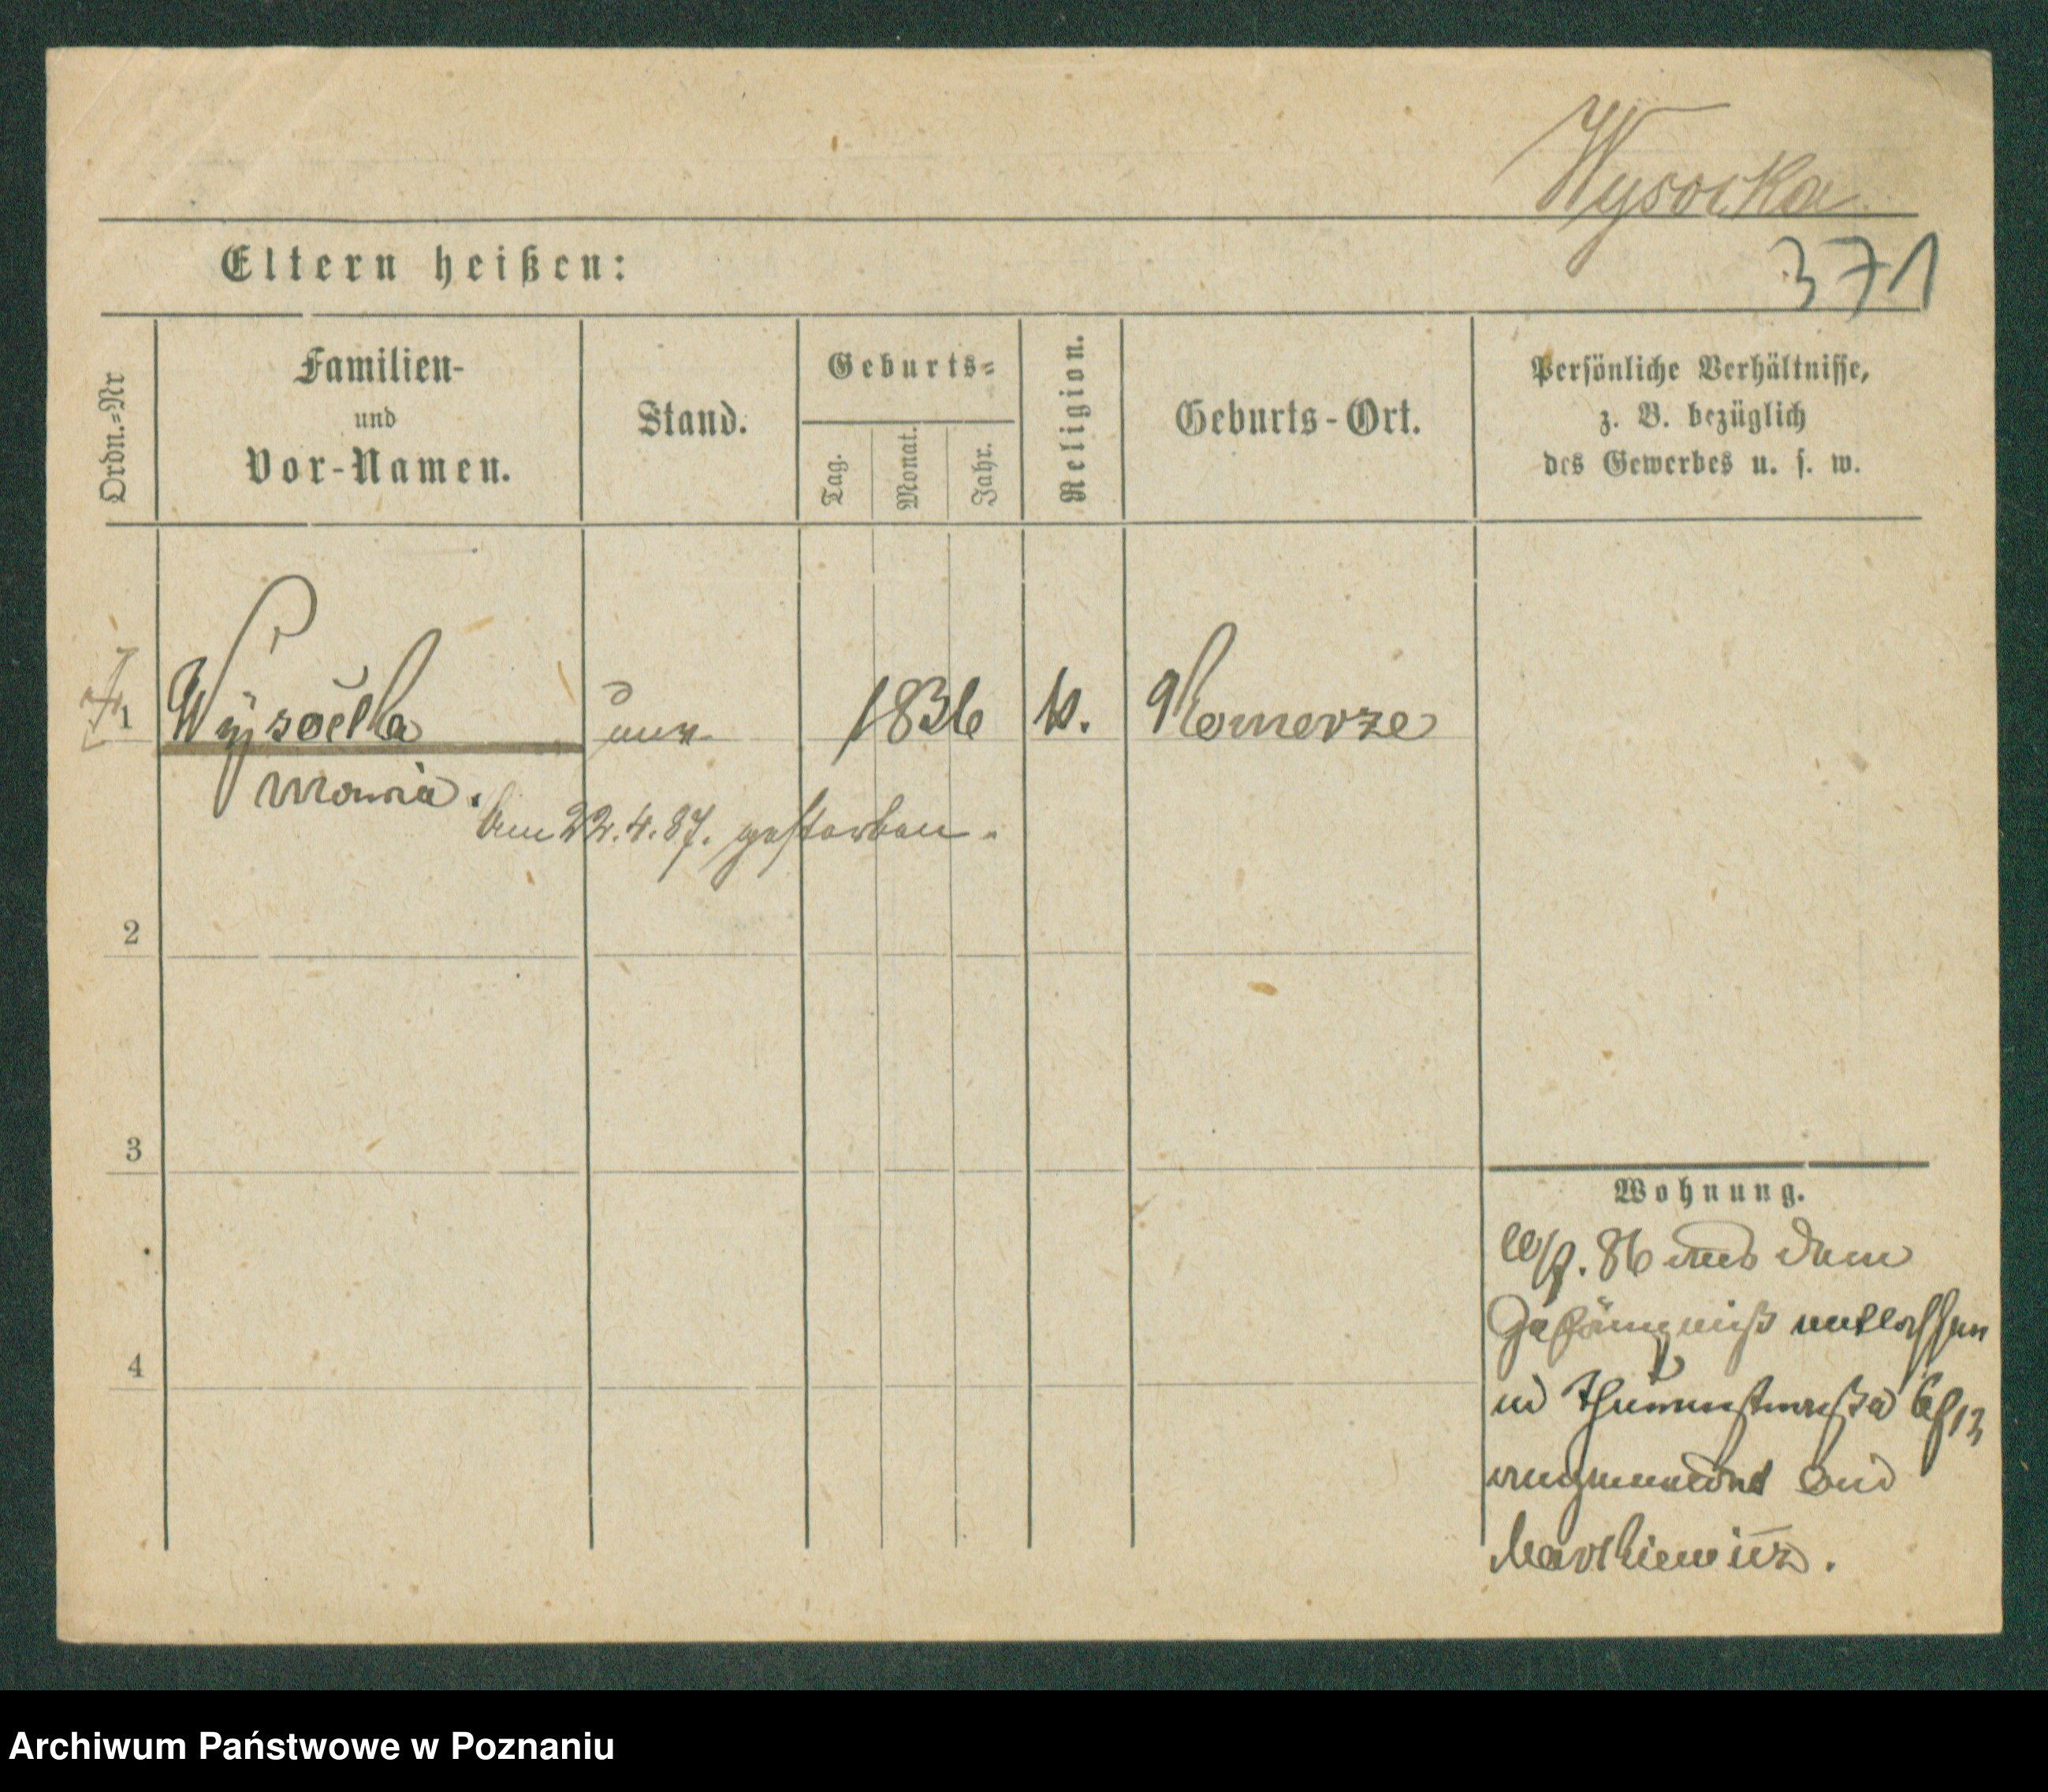 Wysocka
371
Eltern heißen:
Ordn.=Nr
Familien-
und
Vor-Namen.
Stand.
Geburts=
Tag.
Monat.
Jahr.
Religion.
Geburts-Ort.
Persönliche Verhältnisse,
z. B. bezüglich
des Gewerbes u. s. w.
1 Wÿsocka 1836 k.
Maria.
Am 22.4.87. gestorben.
2
3
4
Wohnung.
86 aus dem
Gefängniß entlassen
angemeldet bei
Archiwum Państwowe w Poznaniu